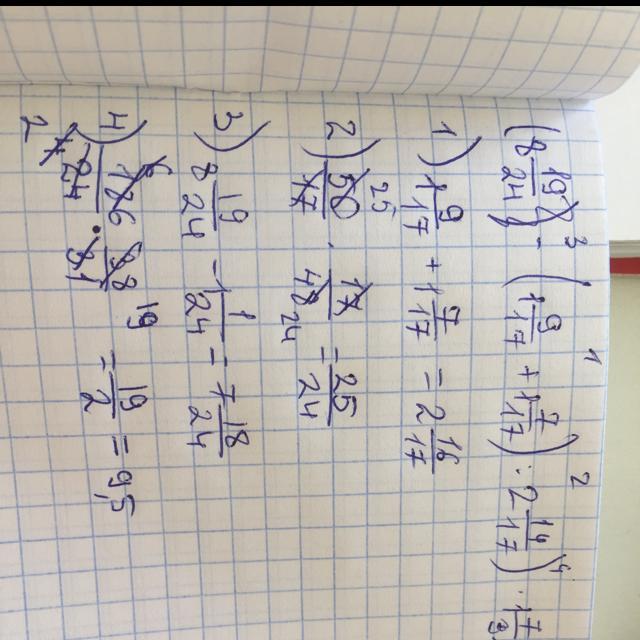 (8 19/24) - (1 9/17 + 1 7/17) : 2 14/17) · 1 7/
1) 1 9/17 + 1 7/17 = 2 16/17
2) 50/17 · 17/48 = 25/24
3) 8 19/24 - 1 1/24 = 7 18/24
4) 186/24 · 38/31 = 19/2 = 9,5